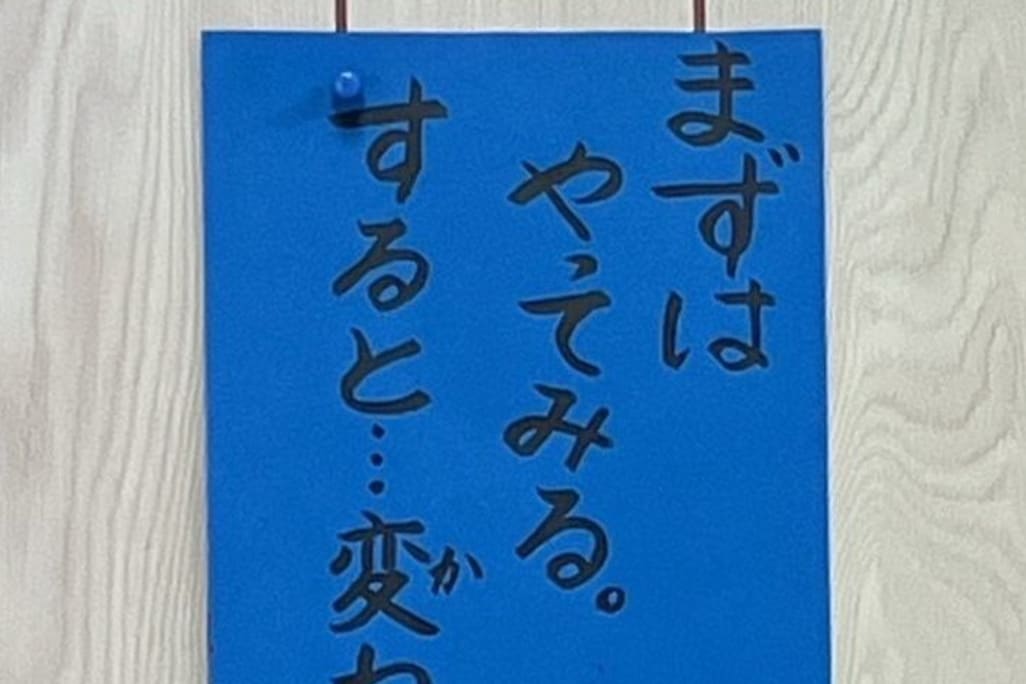 まずは
やってみる。
すると…変
か